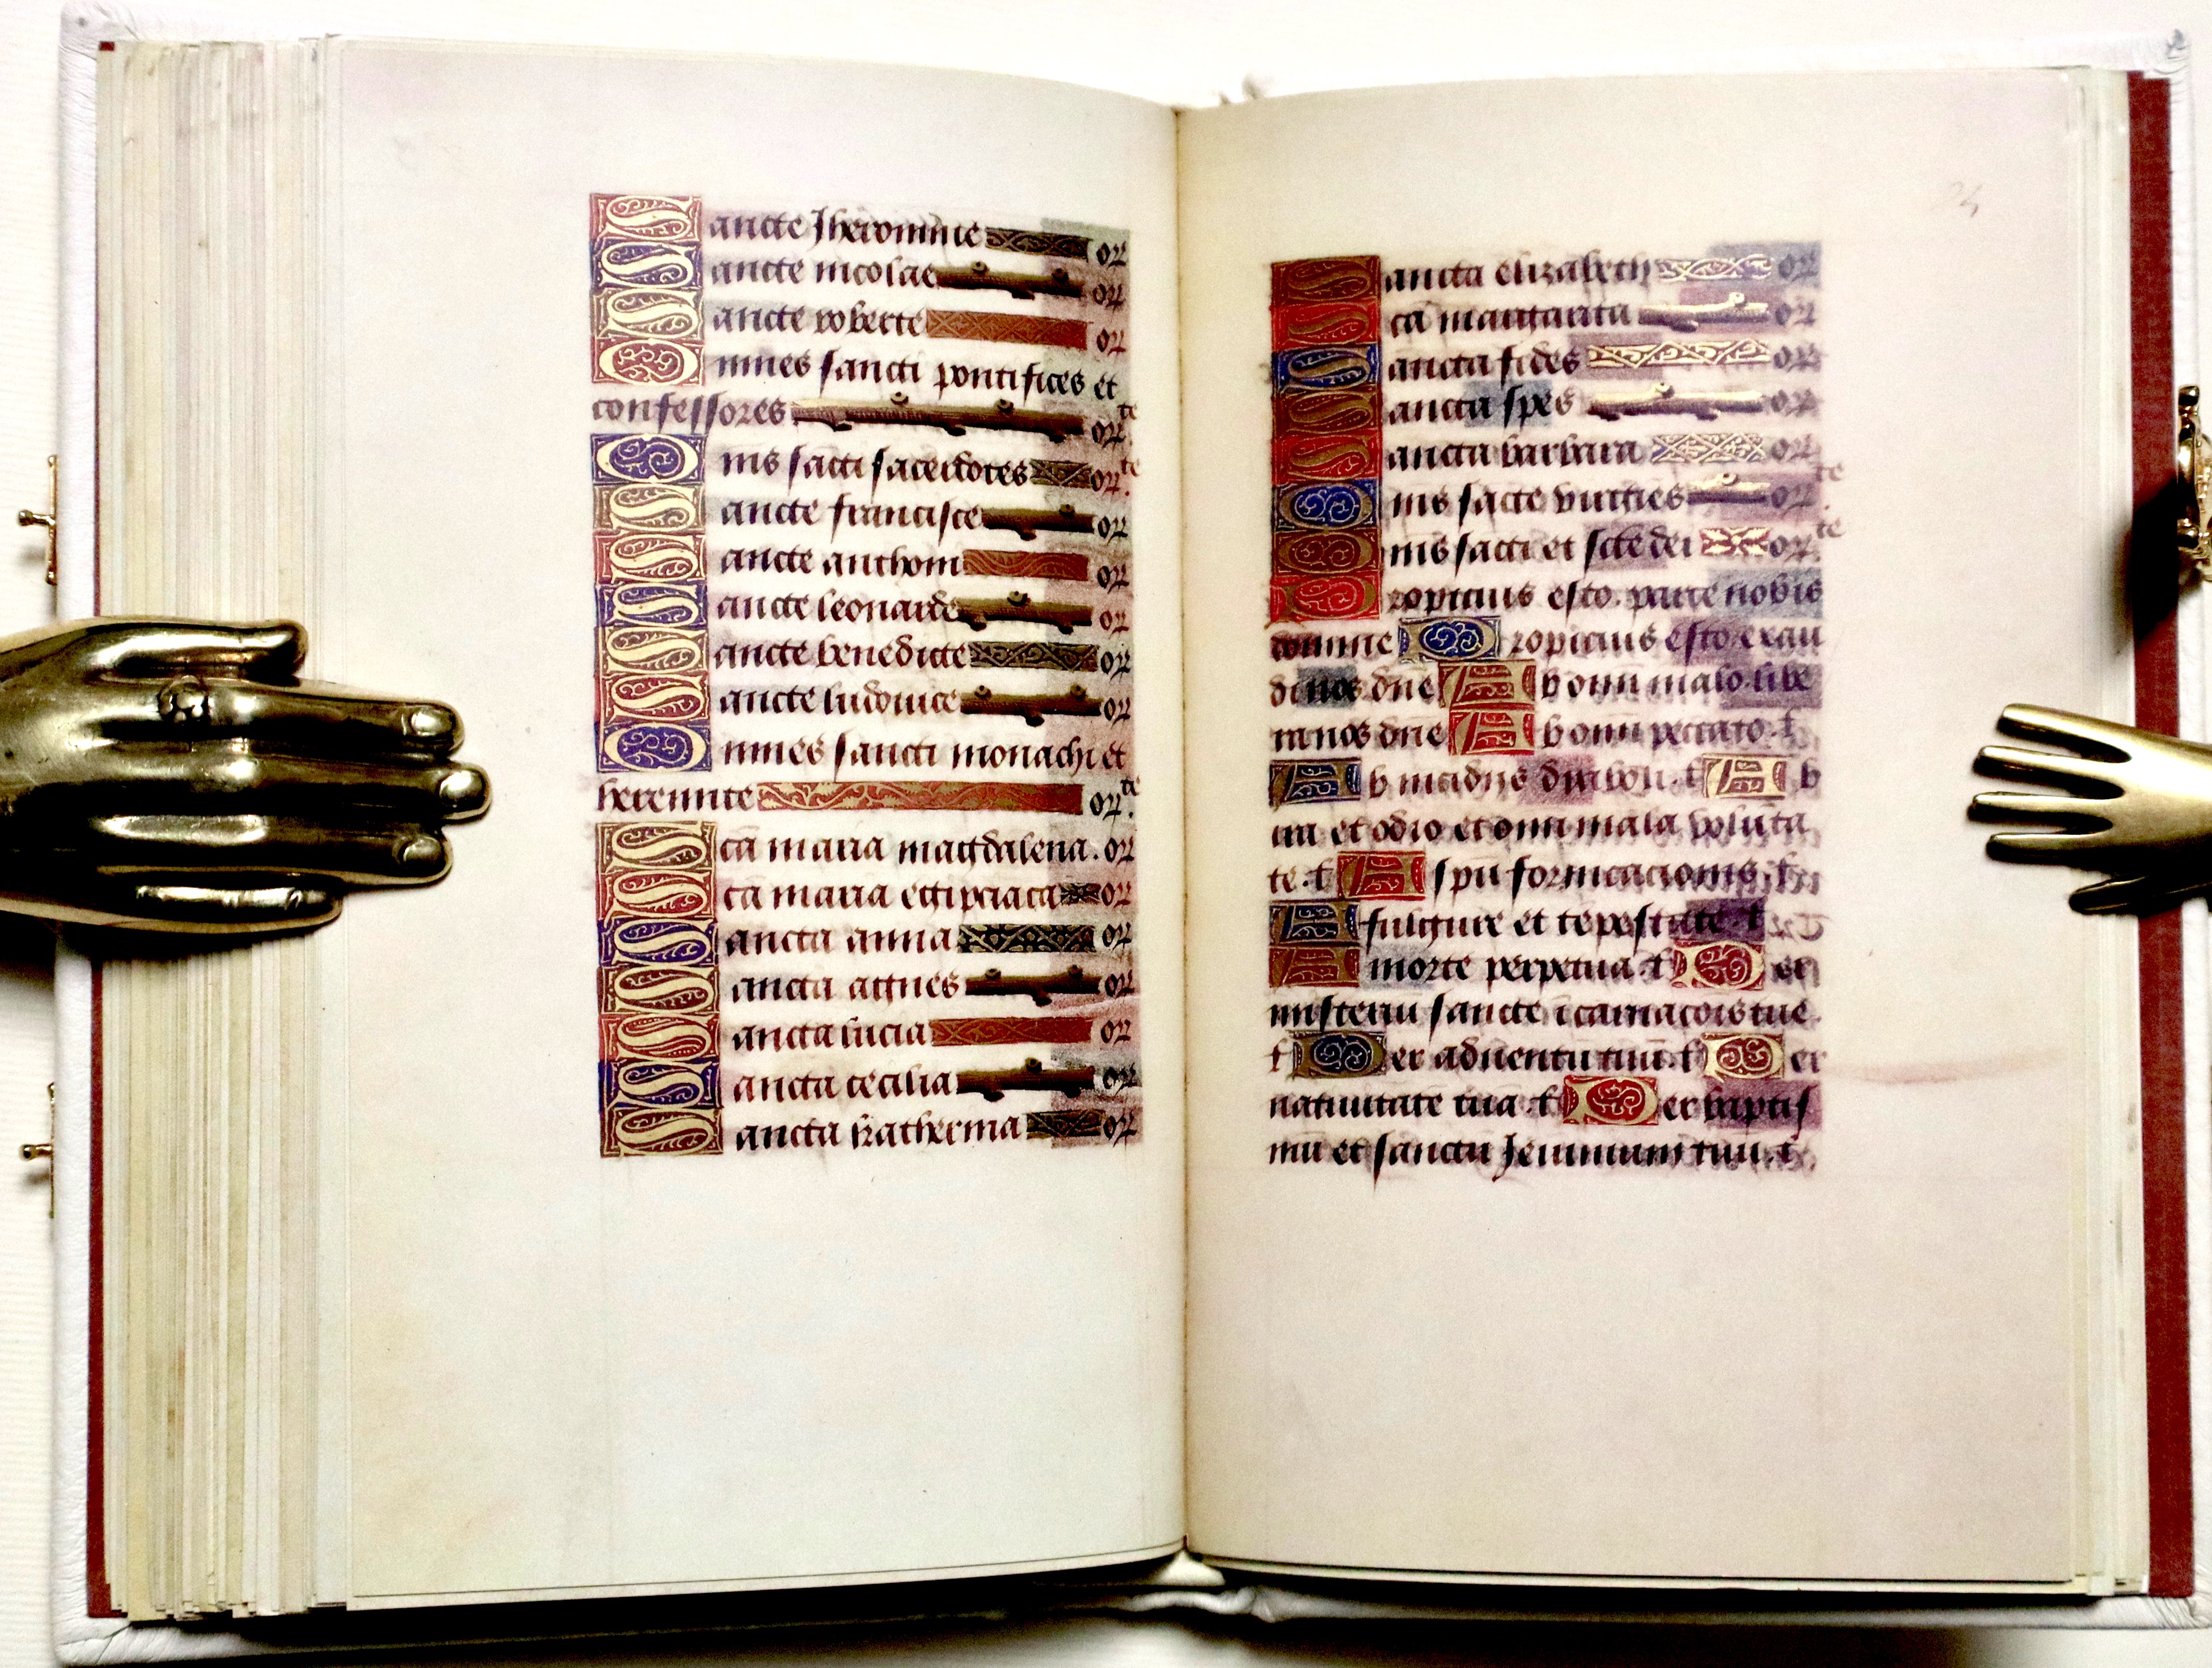 Sancte Jheronime or
Sancte nicolae or
Sancte roberte or
Omnes sancti pontifices et
confessores or te.
Omīs sācti sacerdotes or te.
Sancte francisce or
Sancte anthoni or
Sancte leonarde or
Sancte benedicte or
Sancte ludovice or
Omnes sancti monachi et
heremite or te.
Scā maria magdalena. or
Scā maria egipciaca or
Sancta anna or
Sancta agnes or
Sancta lucia or
Sancta cecilia or
Sancta katherina or
Sancta elizabeth or
Scā margarita or
Sancta fides or
Sancta spes or
Sancta barbara or
Omīs sācte virgīes or te
Omīs sācti et scīe dei or te
Propicius esto. parce nobis
domine Propicius esto exau
di nos dn̄e Ab omni malo libe
ra nos dn̄e Ab omni peccato. l
Ab insidiis diaboli. l Ab
ira et odio et omni mala volūta
te. l A spū fornicacionis. l
A fulgure et tēpestate. l
A morte perpetua. l Per
misteriū sancte īcarnacōis tue.
l Per adventū tuū. l Per
nativitatē tuā. l Per baptis
mū et sanctū Jeiunium tuū. l